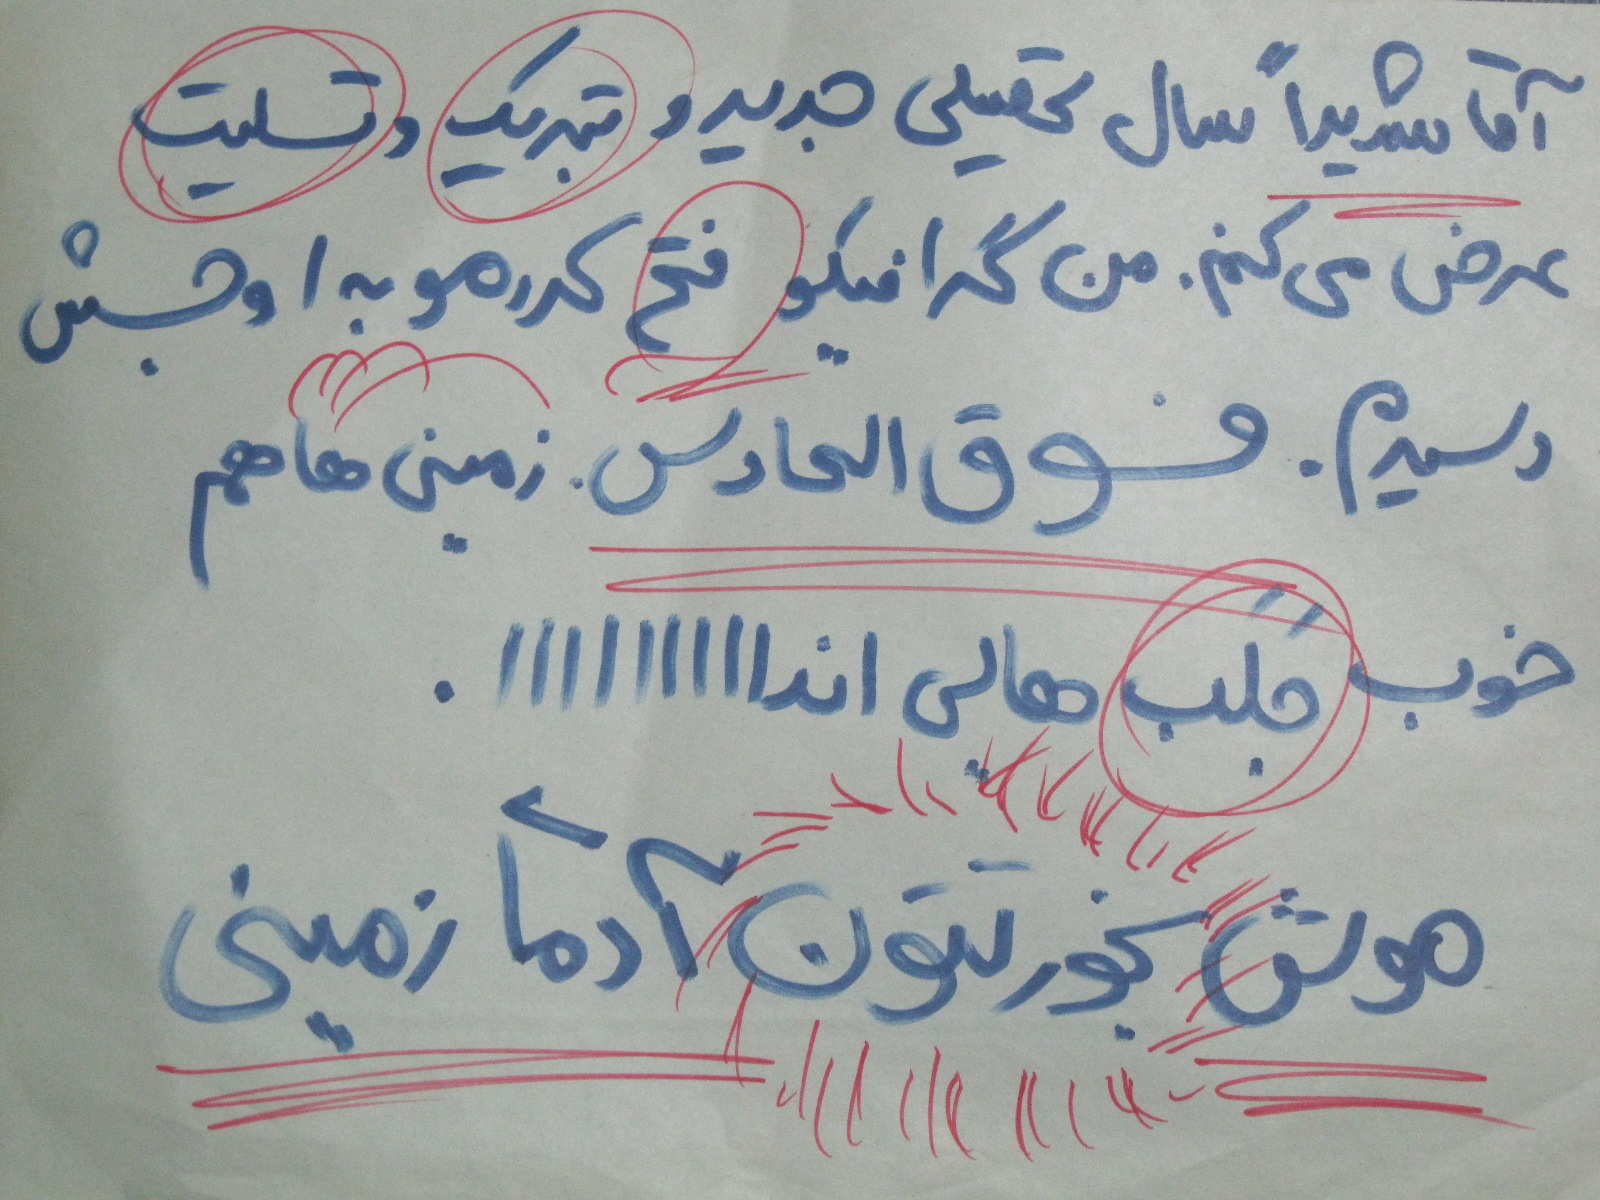 آقا شدیداً سال تحصیلی جدید و تبریک و تسلیت
عرض می‌کنم. من گرافیکو فتح کردمو به اوجش
رسیدم. فوق العادس. زمینی ها هم
خوب جُلب هایی اندااااااااااا.
موش بخورتتون آدمآ زمینی